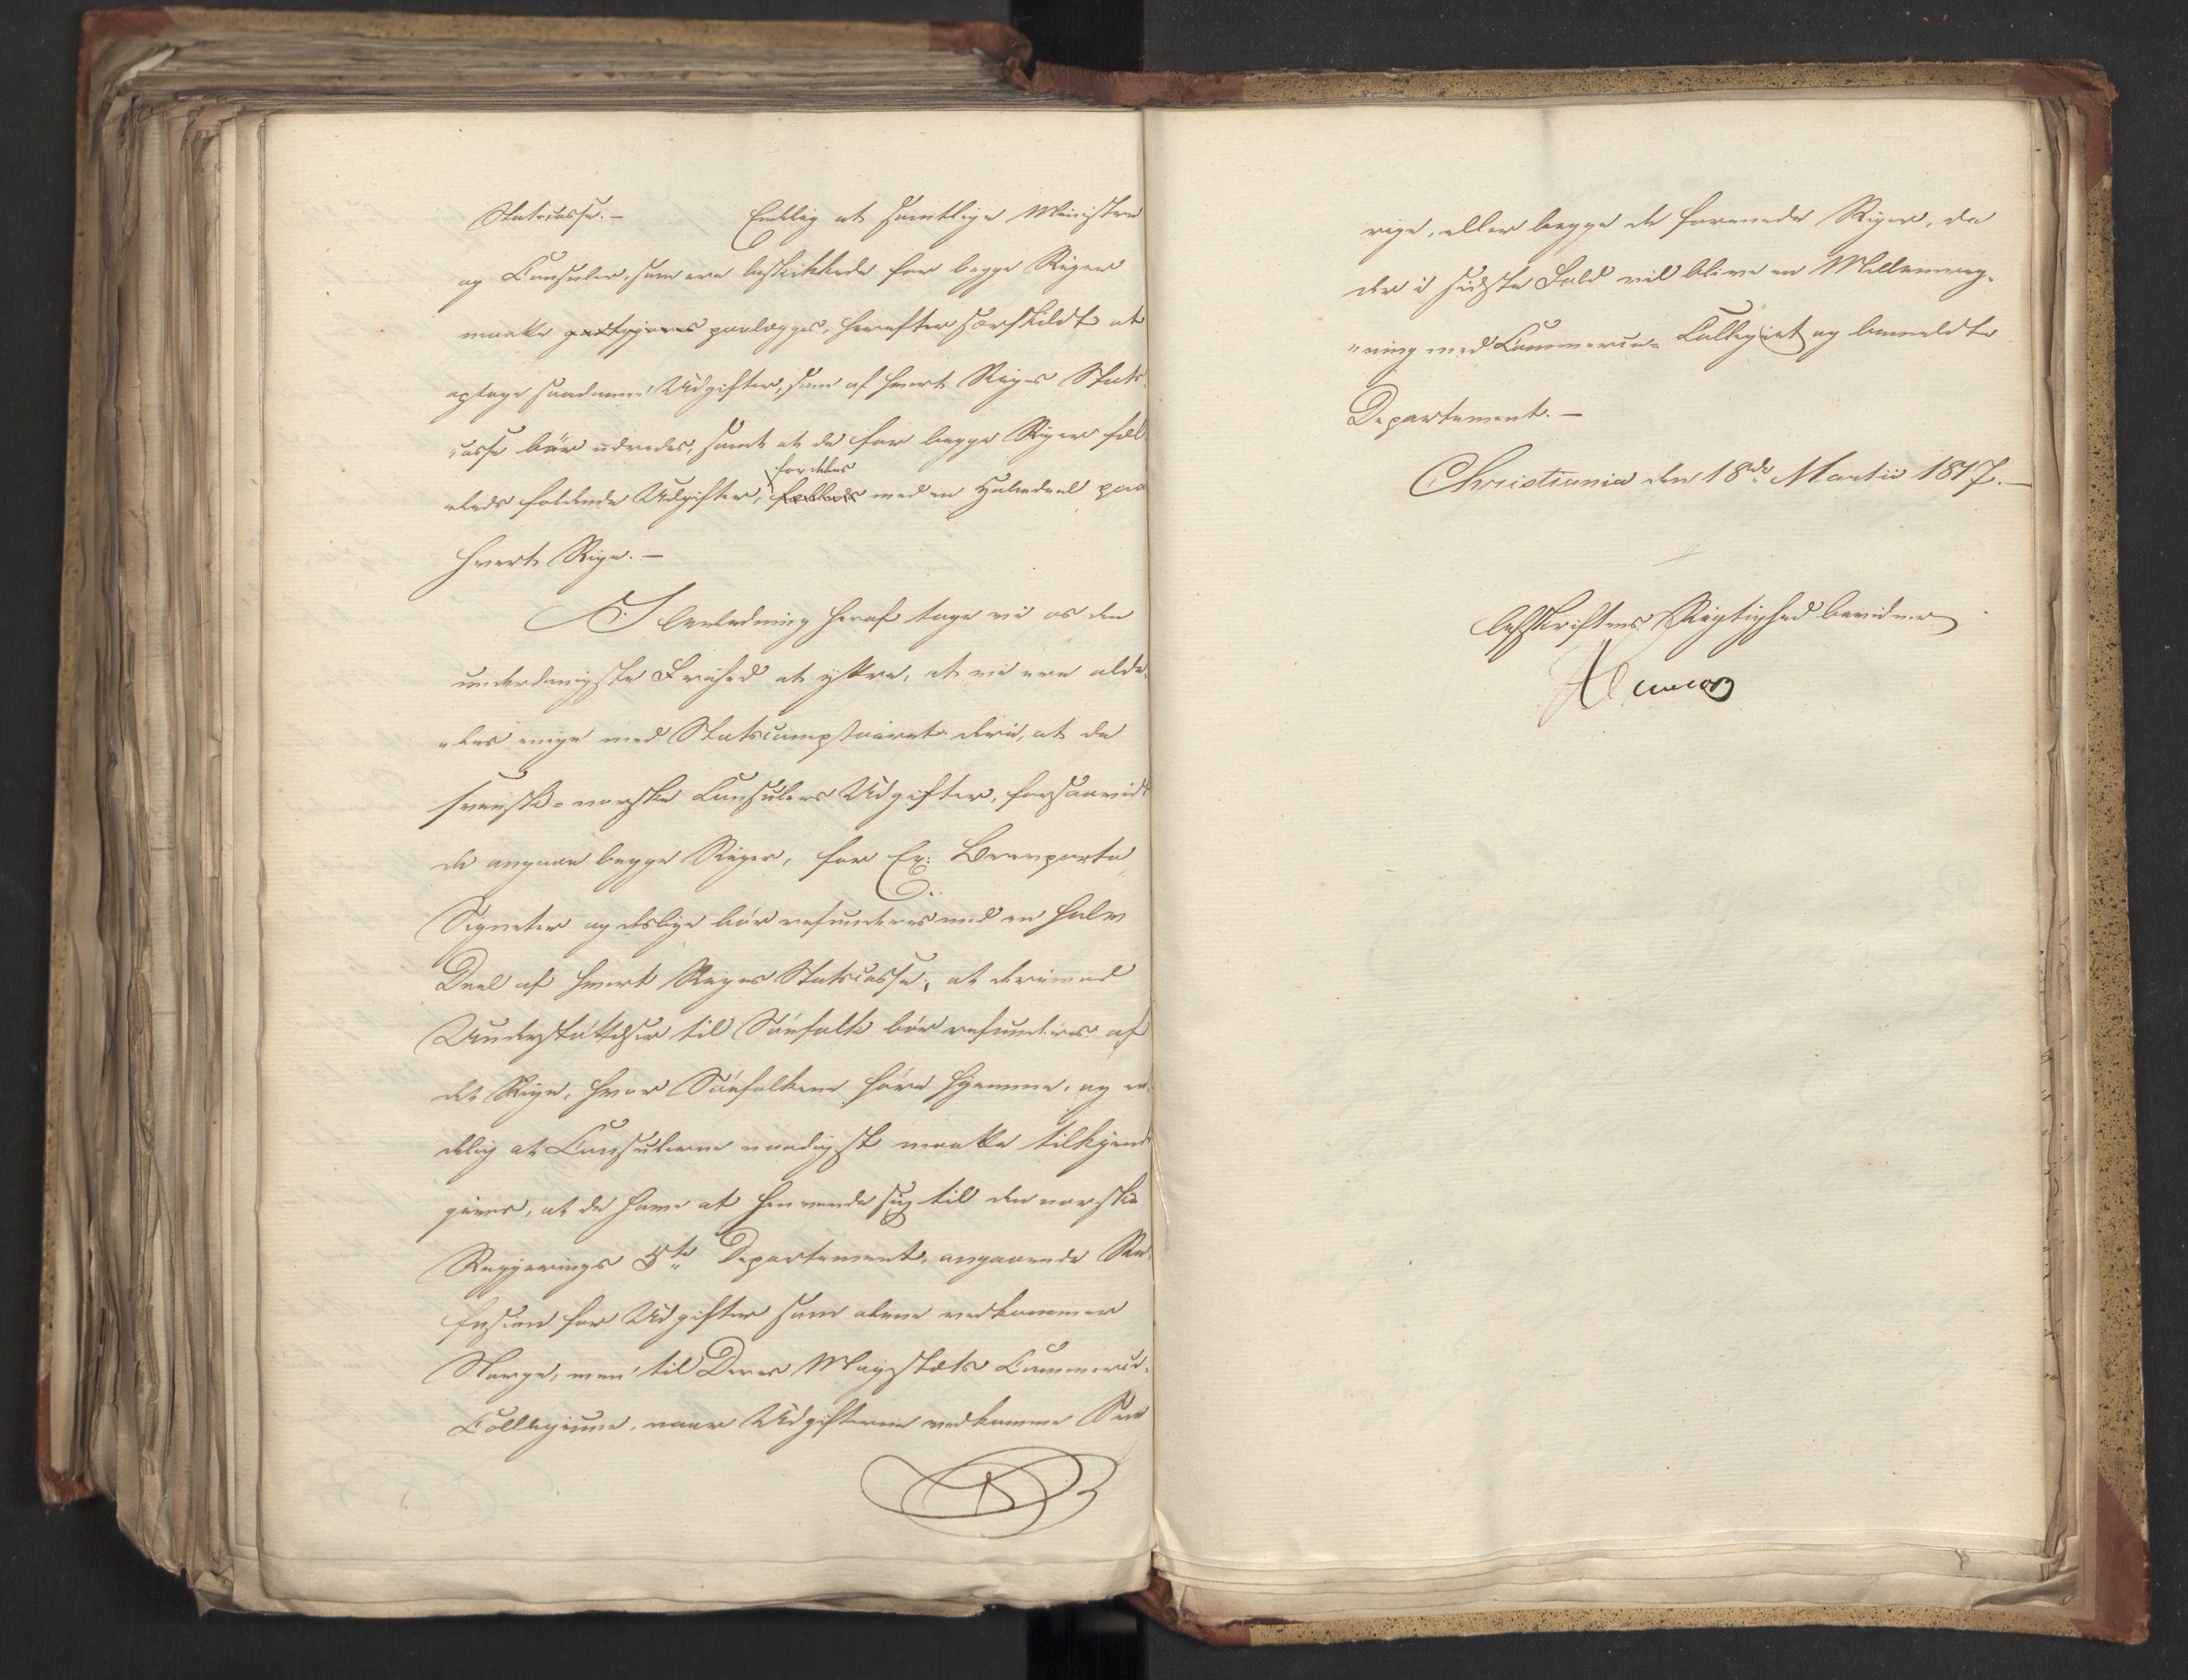 Statscasse. — Endelig at samtlige Ministre
og Consuler, som ere beskikkede for begge Riger
maatte godtgjøres paalægges, herefter særskildt at
optage saadanne Udgifter, som af hvert Riges Stats
casse bør udredes, samt at de for begge Riger fæl
fordeles
leds faldende Udgifter, fælleds med en Halvdeel paa
hvert Rige. —
I Anledning heraf tage vi os den
underdanigste Friehed at yttre, at vi ere alde„
„les enige med Statscomptoiret deri, at de
svensk-norske Consulers Udgifter, forsaavidt
de angaae begge Riger, for Ex: Brevporto,
Signeter og deslige bør refunderes med en halv
Deel af hvert Riges Statscasse; at derimod
Understøttelser til Søefolk bør refunderes af
det Rige, hvor Søefolkene høre hjemme, og en„
delig at Consulerne naadigst maatte tilkjende
gives, at de have at henvende sig til den norske
Regjerings 5te Departement, angaaende Re„
fusion for Udgifter som alene vedkommer
Norge, men til Deres Majestæts Commerce-
Collegium, naar Udgifterne vedkomme Sve
rige, eller begge de forenede Riger, da
der i sidste Fald vil blive en Mellemreg„
„ning med Commerce-Collegiet og bemeldte
Departement. —
Christiania den 18de Martii 1817. —
Afskriftens Rigtighed bevidner